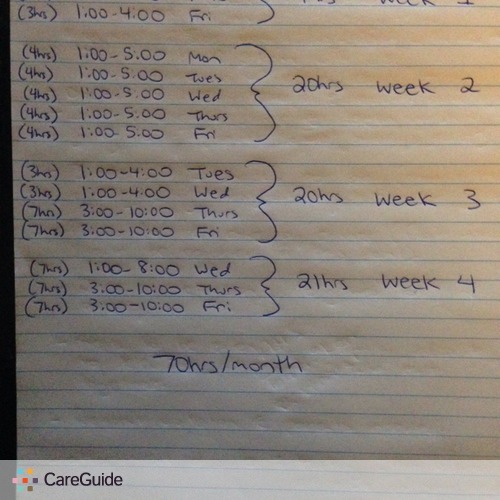 week 1
(3hrs) 1:00-4:00 Fri
(4hrs) 1:00-5:00 Mon
(4hrs) 1:00-5:00 Tues
(4hrs) 1:00-5:00 Wed 20hrs week 2
(4hrs) 1:00-5:00 Thurs
(4hrs) 1:00-5:00 Fri
(3hrs) 1:00-4:00 Tues
(3hrs) 1:00-4:00 Wed 20hrs week 3
(7hrs) 3:00-10:00 Thurs
(7hrs) 3:00-10:00 Fri
(7hrs) 1:00-8:00 Wed
(7hrs) 3:00-10:00 Thurs 21hrs week 4
(7hrs) 3:00-10:00 Fri
70hrs/month
CareGuide